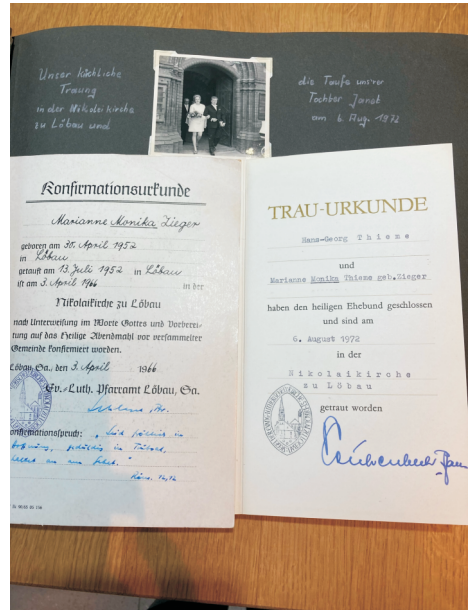 Unsre kirchliche
Trauung
in der Nikolaikirche
zu Löbau und
die Taufe unsrer
Tochter Janet
am 6. Aug. 1972
Konfirmationsurkunde
Marianne Monika Zieger
geboren am 30. April 1952
in Löbau
getauft am 13. Juli 1952 in Löbau
ist am 3. April 1966 in der
Nikolaikirche zu Löbau
nach Unterweisung im Worte Gottes und Vorberei-
tung auf das Heilige Abendmahl vor versammelter
Gemeinde konfirmiert worden.
Löbau, Sa., den 3. April 1966
Ev.-Luth. Pfarramt Löbau, Sa.
Konfirmationsspruch: „Seid fröhlich in
Hoffnung, geduldig in Trübsal,
haltet an am Gebet."
Röm. 12,12
TRAU-URKUNDE
Hans-Georg Thieme
und
Marianne Monika Thieme geb. Zieger
haben den heiligen Ehebund geschlossen
und sind am
6. August 1972
in der
Nikolaikirche
zu Löbau
getraut worden